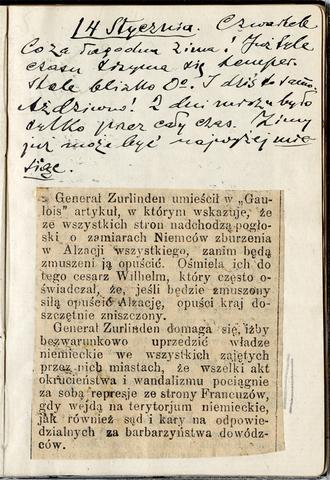 14 Stycznia. Czwartek
Co za łagodna zima! Już tyle
czasu trzyma się temper.
stale blizko 0°. I dziś to samo.
Aż dziwno! 2 dni mrozu było
tylko przez cały czas. Zimy
już może być najwyżej mie-
siąc.
Generał Zurlinden umieścił w „Gau-
lois" artykuł, w którym wskazuje, że
ze wszystkich stron nadchodzą pogło-
ski o zamiarach Niemców zburzenia
w Alzacji wszystkiego, zanim będą
zmuszeni ją opuścić. Ośmiela ich do
tego cesarz Wilhelm, który często o-
świadczał, że, jeśli będzie zmuszony
siłą opuścić Alzację, opuści kraj do-
szczętnie zniszczony.
Generał Zurlinden domaga się, iżby
bezwarunkowo uprzedzić władze
niemieckie we wszystkich zajętych
przez nich miastach, że wszelki akt
okrucieństwa i wandalizmu pociągnie
za sobą represje ze strony Francuzów,
gdy wejdą na terytorjum niemieckie,
jak również sąd i kary na odpowie-
dzialnych za barbarzyństwa dowódz-
ców.